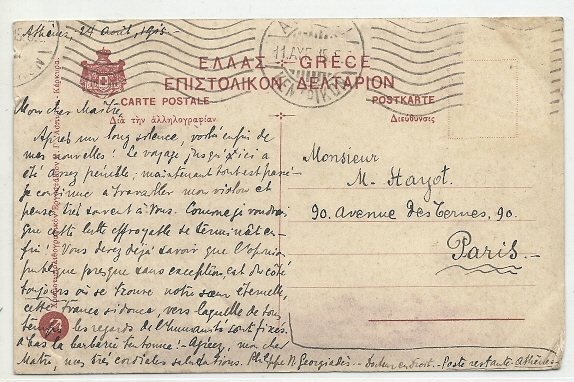 Athènes, 24 août, 1915
ΕΛΛΑΣ GRÈCE
11 ΑΥΓ 15
ΕΠΙΣΤΟΛΙΚΟΝ ΔΕΛΤΑΡΙΟΝ
CARTE POSTALE
POSTKARTE
Διὰ τὴν ἀλληλογραφίαν
Διεύθυνσις
Mon cher Maître,
Après un long silence, voilà enfin de
mes nouvelles! Le voyage jusqu'ici a
été assez pénible; maintenant tout est passé
Je continue à travailler mon violon et
pense très souvent à Vous. Comme je voudrais
que cette lutte effroyable se termināt en-
fin! Vous devez déjà savoir que l'opinion
publique presque sans exception est du côté
toujours où se trouve notre sœur éternelle,
cette France si douce, vers laquelle de tout
temps les regards de l'humanité sont fixés.
A bas la barbarie teutonne! Agréez, mon cher
Maître, mes très cordiales salutations. Philippe N. Georgiadès - Docteur en Droit - Poste restante - Athènes -
Monsieur
M. Hayot.
90. Avenue des Ternes, 90.
Paris